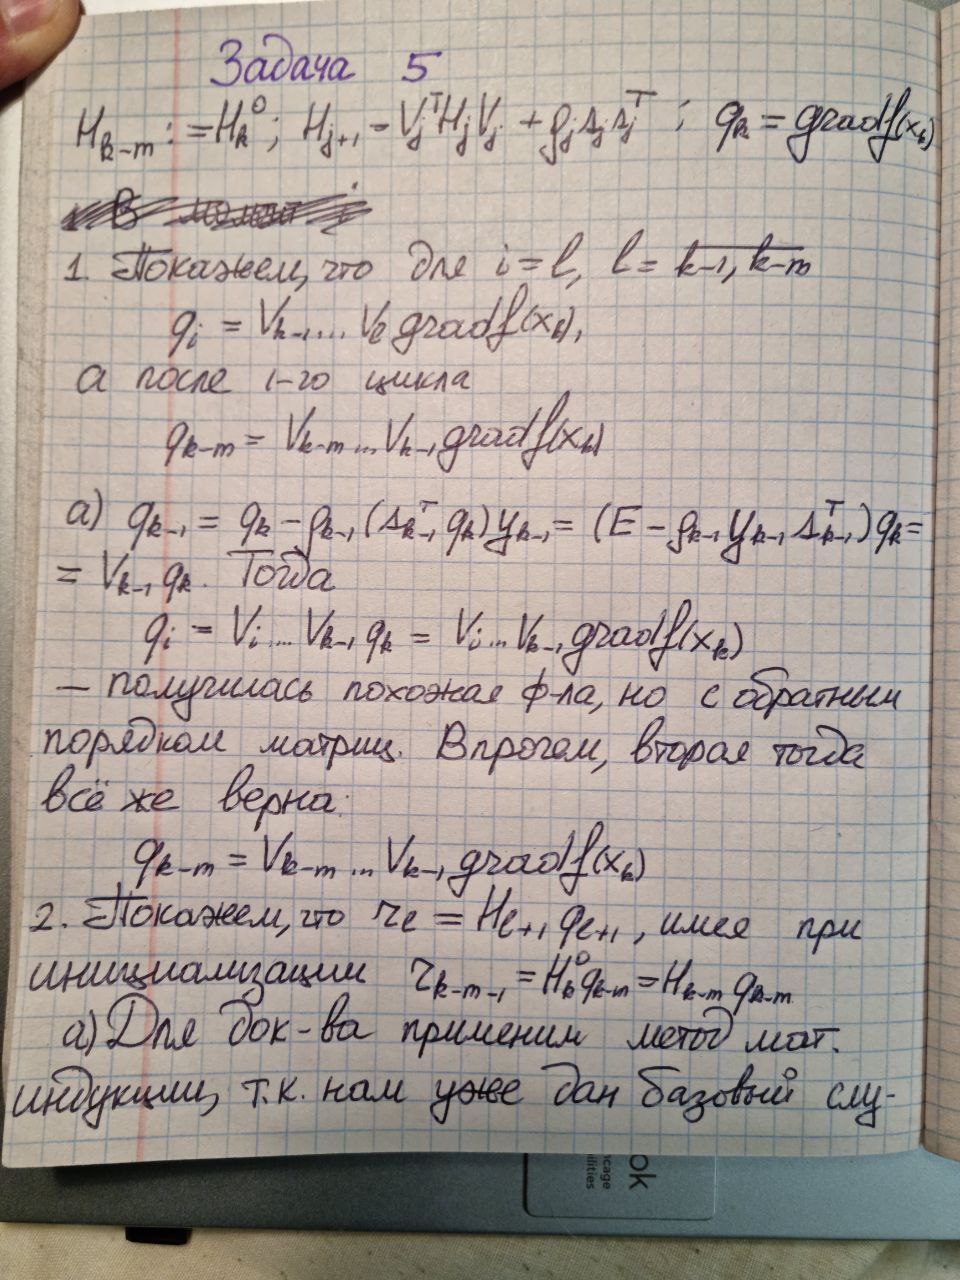 Задача 5
H_{k-m} := H_k^0; H_{j+1} = V_j^T H_j V_j + ρ_j s_j s_j^T; q_k = gradf(x_k)
1. Покажем, что для i = l, l = \overline{k-1, k-m}
q_i = V_{k-1} ... V_l gradf(x_k),
а после 1-го цикла
q_{k-m} = V_{k-m} ... V_{k-1} gradf(x_k)
а) q_{k-1} = q_k - ρ_{k-1} (s_{k-1}^T q_k) y_{k-1} = (E - ρ_{k-1} y_{k-1} s_{k-1}^T) q_k =
= V_{k-1} q_k. Тогда
q_i = V_i ... V_{k-1} q_k = V_i ... V_{k-1} gradf(x_k)
— получилась похожая ф-ла, но с обратным
порядком матриц. Впрочем, вторая тогда
всё же верна:
q_{k-m} = V_{k-m} ... V_{k-1} gradf(x_k)
2. Покажем, что r_l = H_{l+1} q_{l+1}, имея при
инициализации r_{k-m-1} = H_k^0 q_{k-m} = H_{k-m} q_{k-m}
а) Для док-ва применим метод мат.
индукции, т.к. нам уже дан базовый слу-
ok